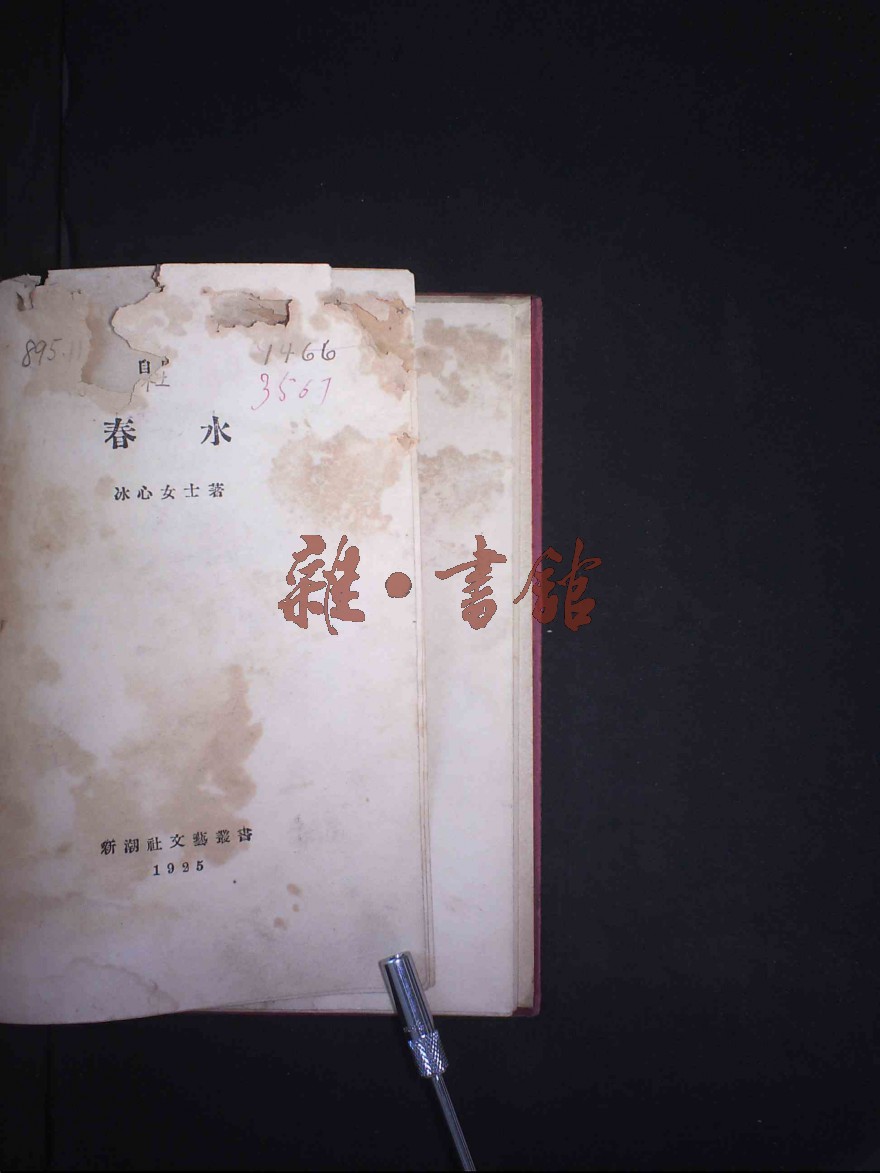 895.11 1466
3567
春水
冰心女士著
雜·書館
新潮社文藝叢書
1925